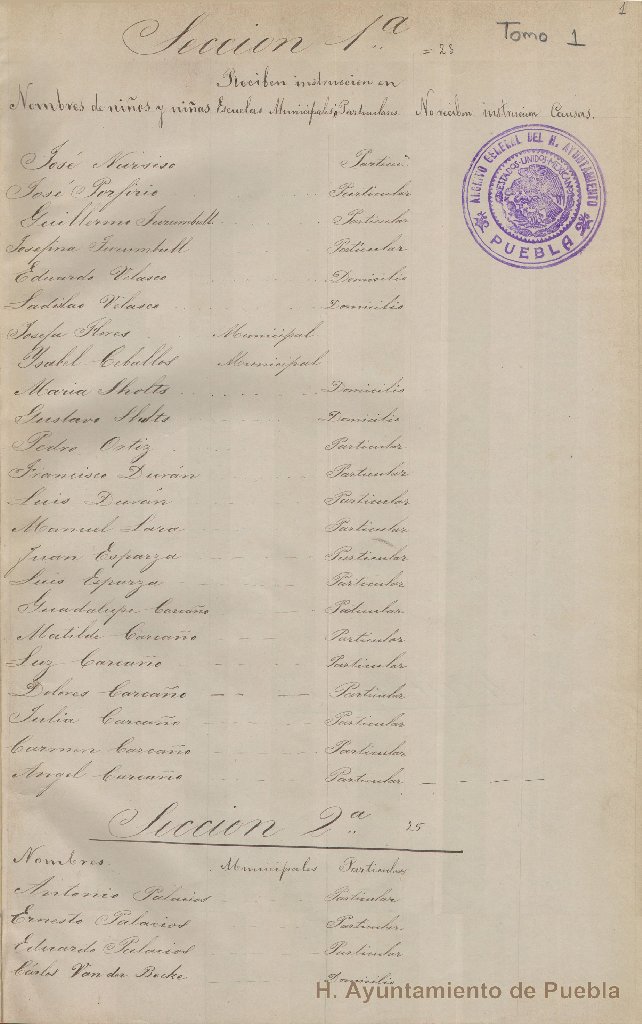 1
Seccion 1ª = 23
Tomo 1
Reciben instruccion en
Nombres de niños y niñas Escuelas Municipales ó Particulares No reciben instruccion Causas.
ARCHIVO GENERAL DEL H. AYUNTAMIENTO
ESTADOS UNIDOS MEXICANOS
PUEBLA
José Narsiso Particu
José Porfirio Particular
Guillermo Turumbull Particular
Josefina Turumbull Particular
Eduardo Velasco Domicilio
Ladislao Velasco Domicilio
Josefa Flores Municipal
Ysabel Ceballos Municipal
Maria Sholts Domicilio
Gustavo Sholts Domicilio
Pedro Ortiz Particular
Francisco Durán Particular
Luis Durán Particular
Manuel Lara Particular
Juan Esparza Particular
Luis Esparza Particular
Guadalupe Carcaño Paticular
Matilde Carcaño Particular
Luz Carcaño Particular
Dolores Carcaño Particular
Julia Carcaño Particular
Carmen Carcaño Particular
Angel Carcaño Particular
Seccion 2ª 25
Nombres Municipales Particulars
Antonio Palacios Particular
Ernesto Palacios Particular
Eduardo Palacios Particular
Cárlos Van der Becke Domicilio
H. Ayuntamiento de Puebla